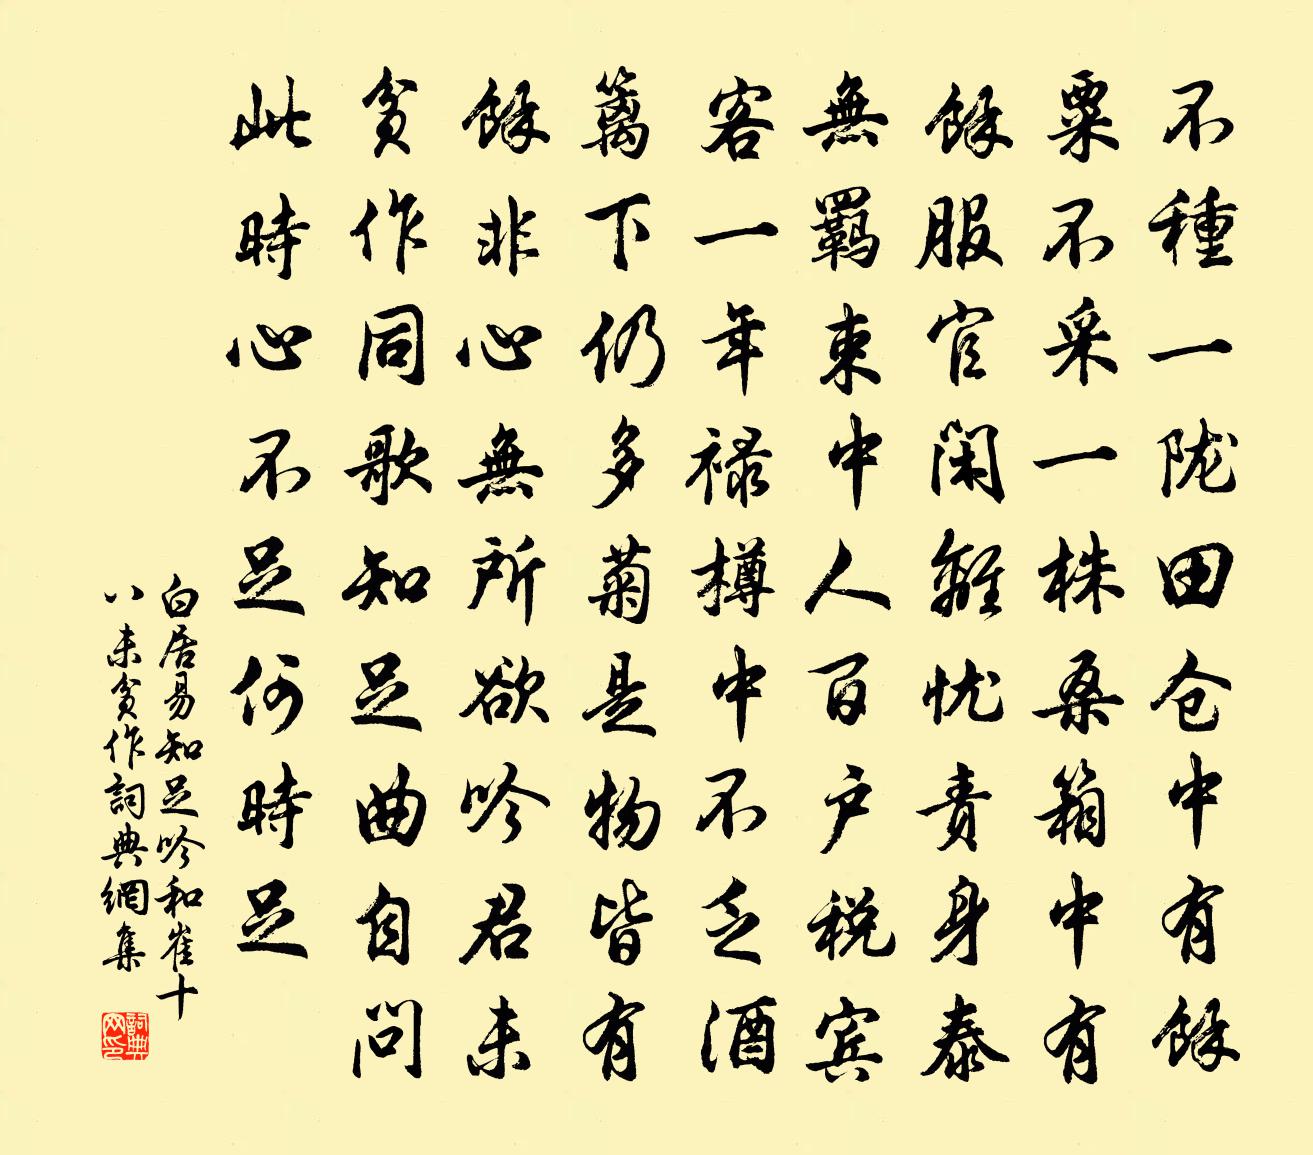 不種一陇田仓中有餘
粟不采一株桑箱中有
餘服官閑離忧责身泰
無羁束中人百户税宾
客一年禄樽中不乏酒
篱下仍多菊是物皆有
餘非心無所欲吟君未
贫作同歌知足曲自问
此時心不足何時足
白居易知足吟和崔十
八未贫作詞典網集
詞典网印